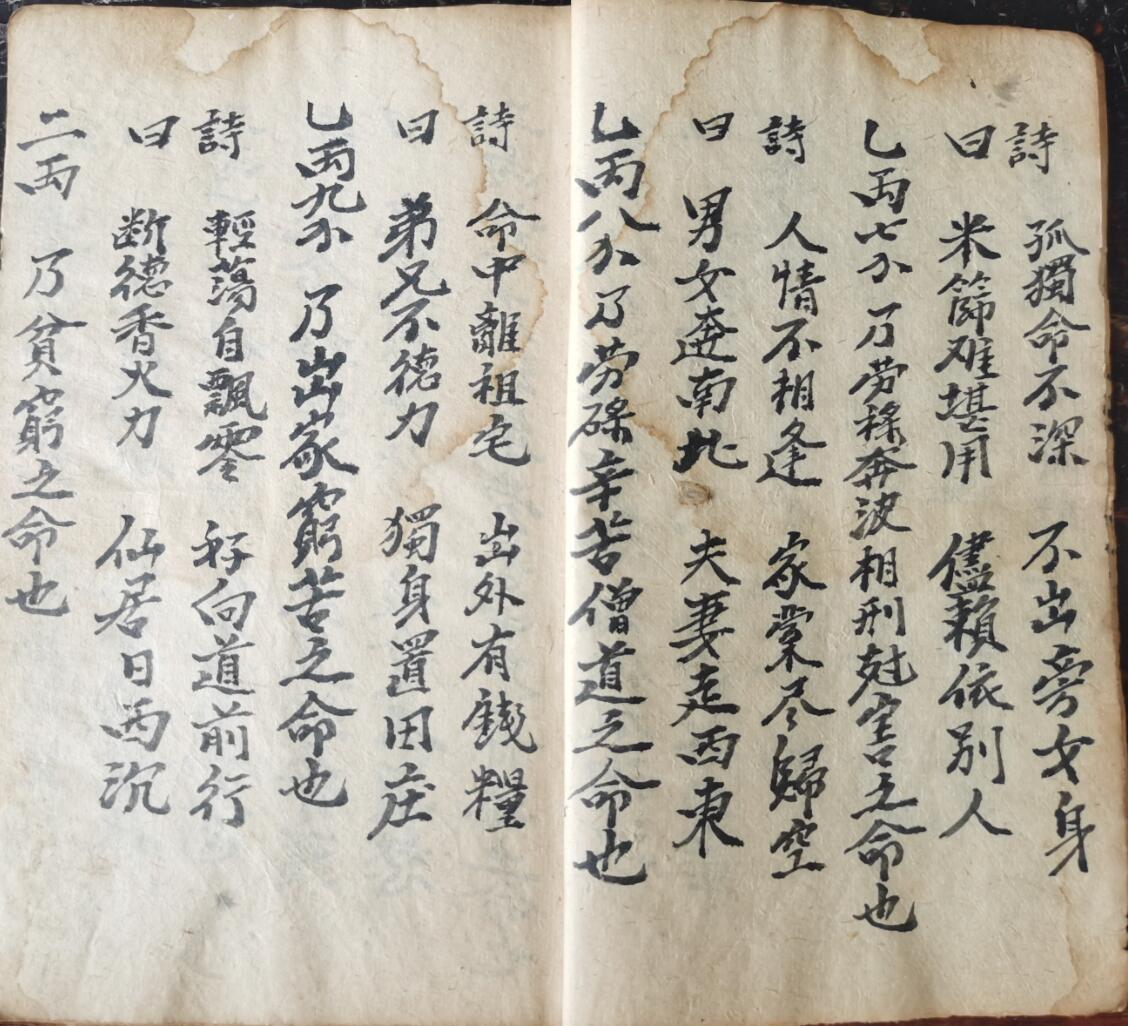 詩 孤獨命不深 不出旁女身
曰 米篩难堪用 儘賴依别人
乙両七分 乃劳碌奔波相刑尅害之命也
詩 人情不相逢 家業尽歸空
曰 男女奔南北 夫妻走西東
乙両八分 乃劳碌辛苦僧道之命也
詩 命中離祖宅 出外有錢糧
曰 弟兄不德力 獨身置田庄
乙両九分 乃出家窮苦之命也
詩 輕蕩自飄零 好向道前行
曰 断德香火力 仙居日西沉
二両 乃貧窮之命也